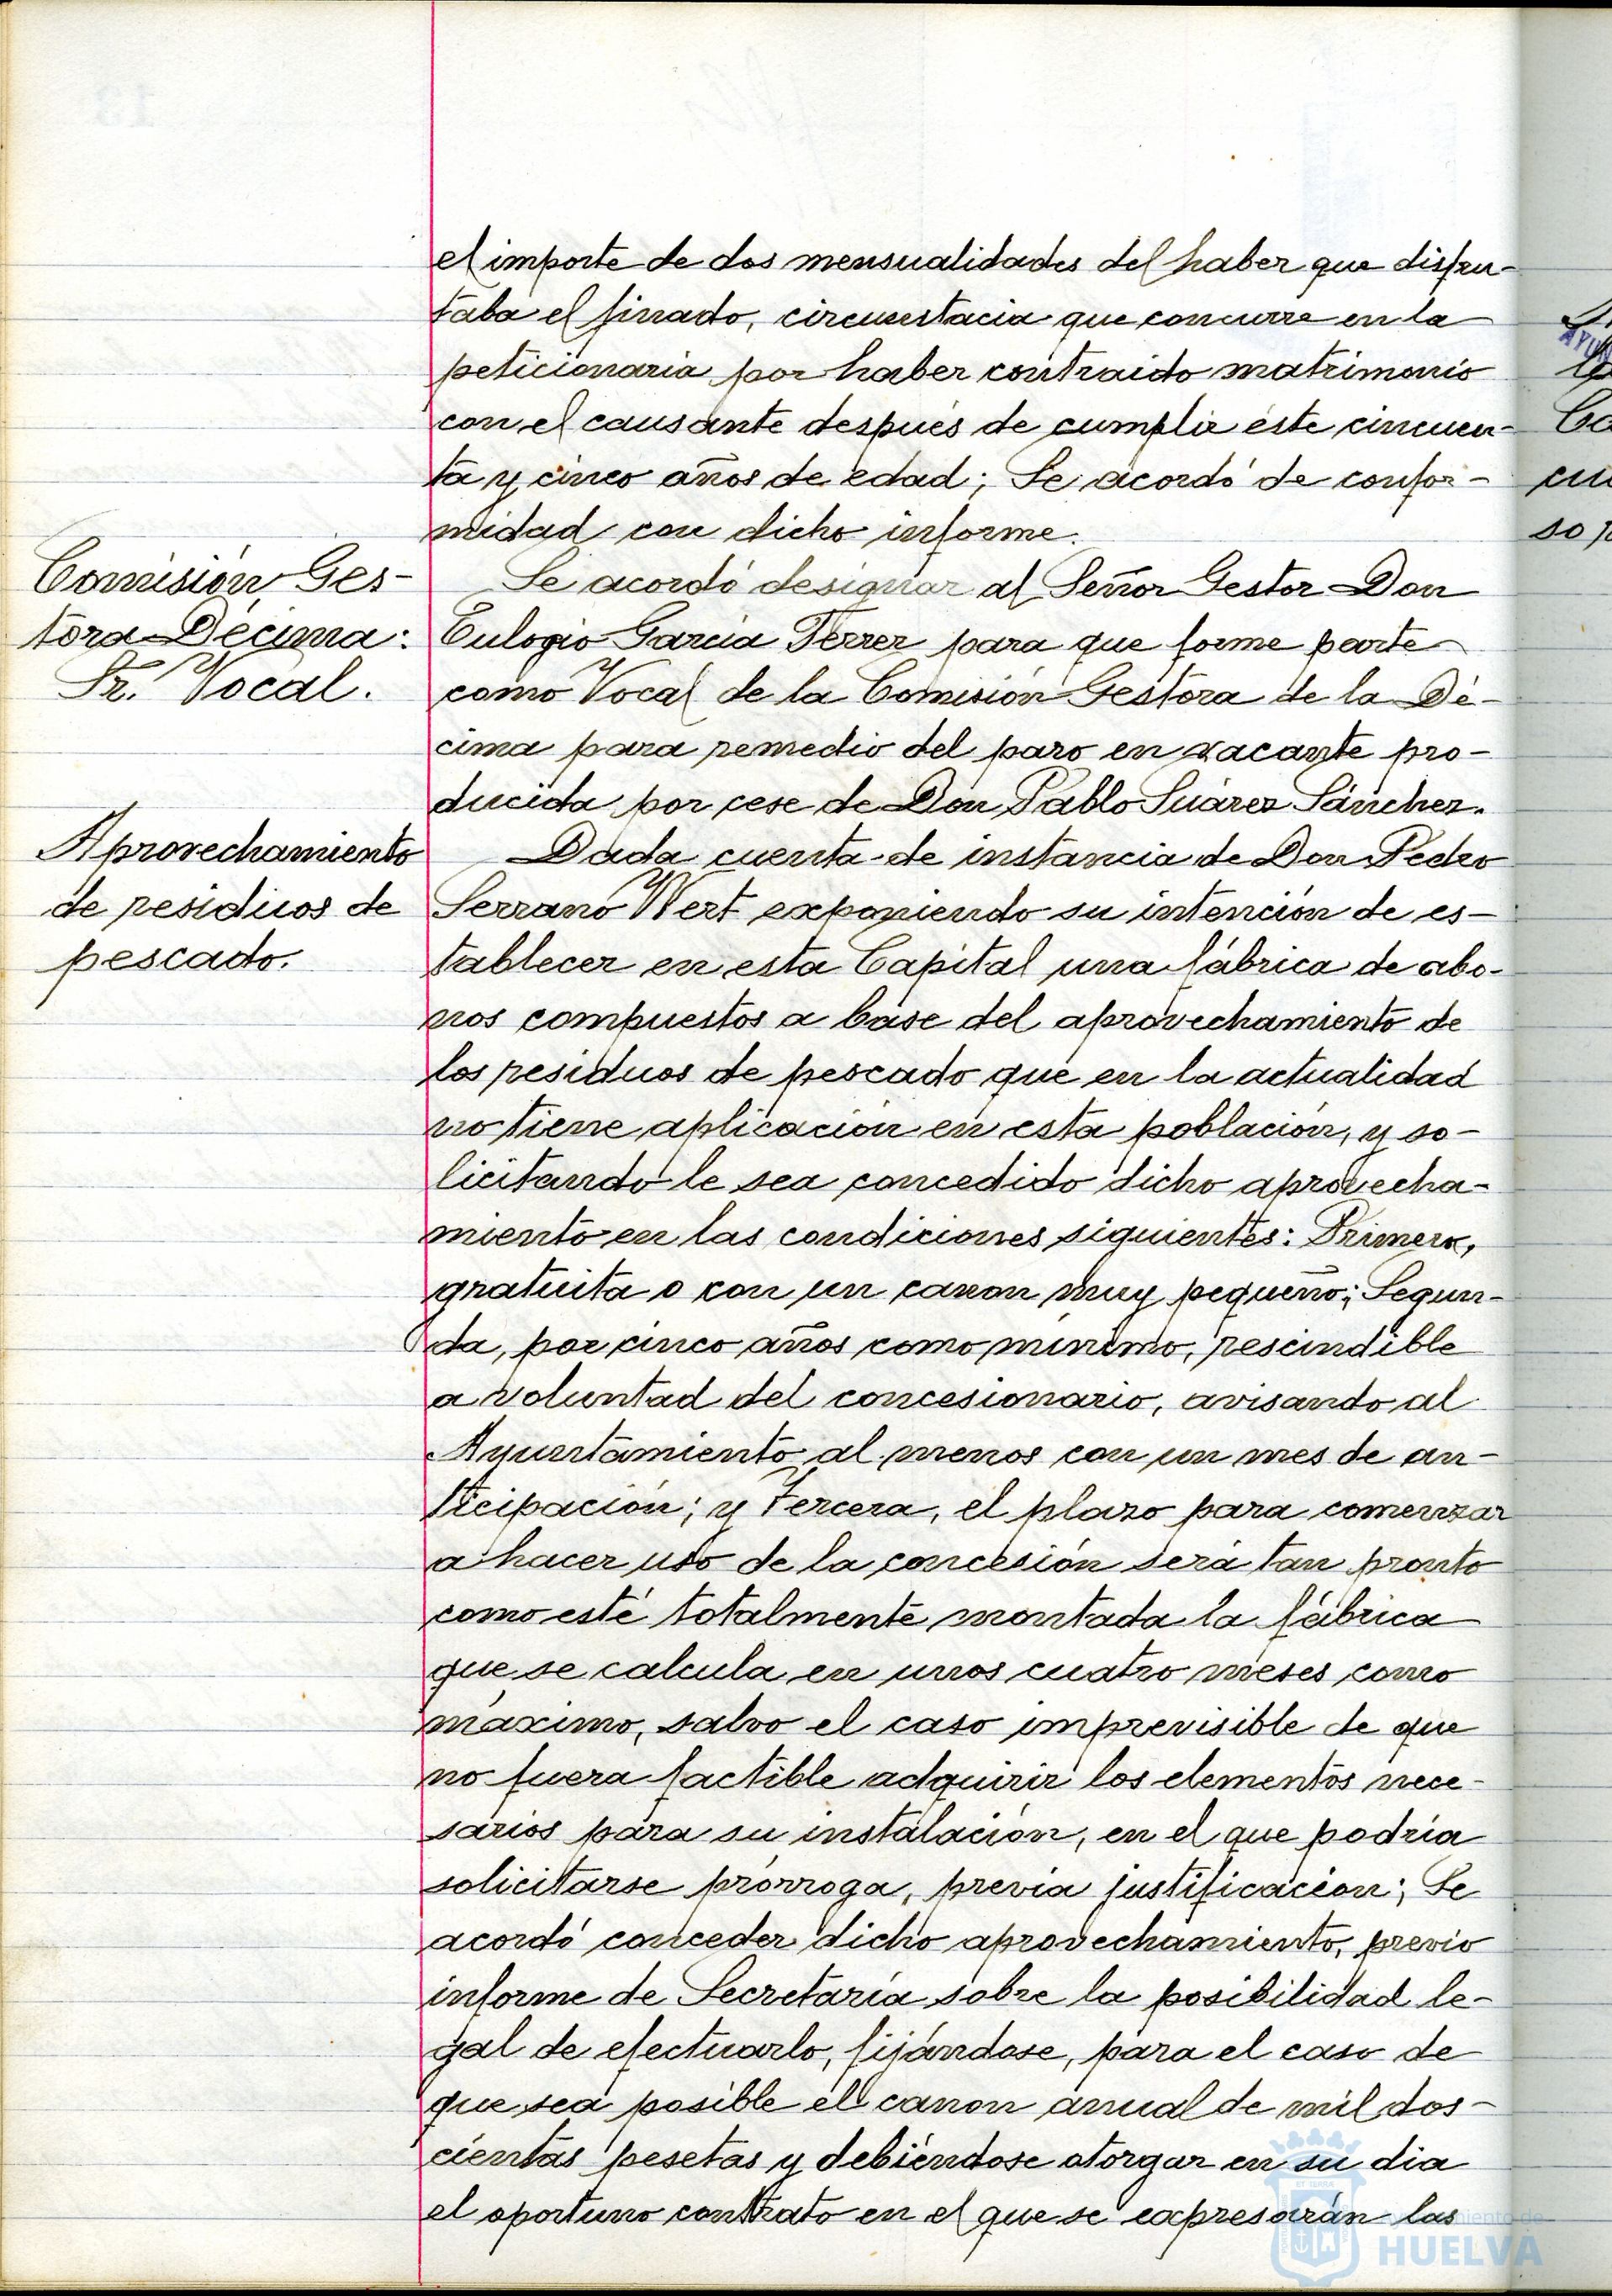 el importe de dos mensualidades del haber que disfru-
taba el finado, circunstacia que concurre en la
peticionaria por haber contraido matrimonio
con el causante después de cumplir éste cincuen-
ta y cinco años de edad; Se acordó de confor-
midad con dicho informe.
Comisión Ges-
tora Décima:
Sr. Vocal.
Se acordó designar al Señor Gestor Don
Eulogio García Ferrer para que forme parte
como Vocal de la Comisión Gestora de la Dé-
cima para remedio del paro en vacante pro-
ducida por cese de Don Pablo Suárez Sánchez.
Aprovechamiento
de residuos de
pescado.
Dada cuenta de instancia de Don Pedro
Serrano Wert exponiendo su intención de es-
tablecer en esta Capital una fábrica de abo-
nos compuestos a base del aprovechamiento de
los residuos de pescado que en la actualidad
no tiene aplicación en esta población, y so-
licitando le sea concedido dicho aprovecha-
miento en las condiciones siguientes: Primera,
gratuita o con un canon muy pequeño; Segun-
da, por cinco años como mínimo, rescindible
a voluntad del concesionario, avisando al
Ayuntamiento al menos con un mes de an-
ticipación; y Tercera, el plazo para comenzar
a hacer uso de la concesión será tan pronto
como esté totalmente montada la fábrica
que se calcula en unos cuatro meses como
máximo, salvo el caso imprevisible de que
no fuera factible adquirir los elementos nece-
sarios para su instalación, en el que podría
solicitarse prórroga, previa justificación; Se
acordó conceder dicho aprovechamiento, previo
informe de Secretaría sobre la posibilidad le-
gal de efectuarlo, fijándose, para el caso de
que sea posible el canon anual de mil dos-
cientas pesetas y debiéndose otorgar en su dia
el oportuno contrato en el que se expresarán las
HUELVA